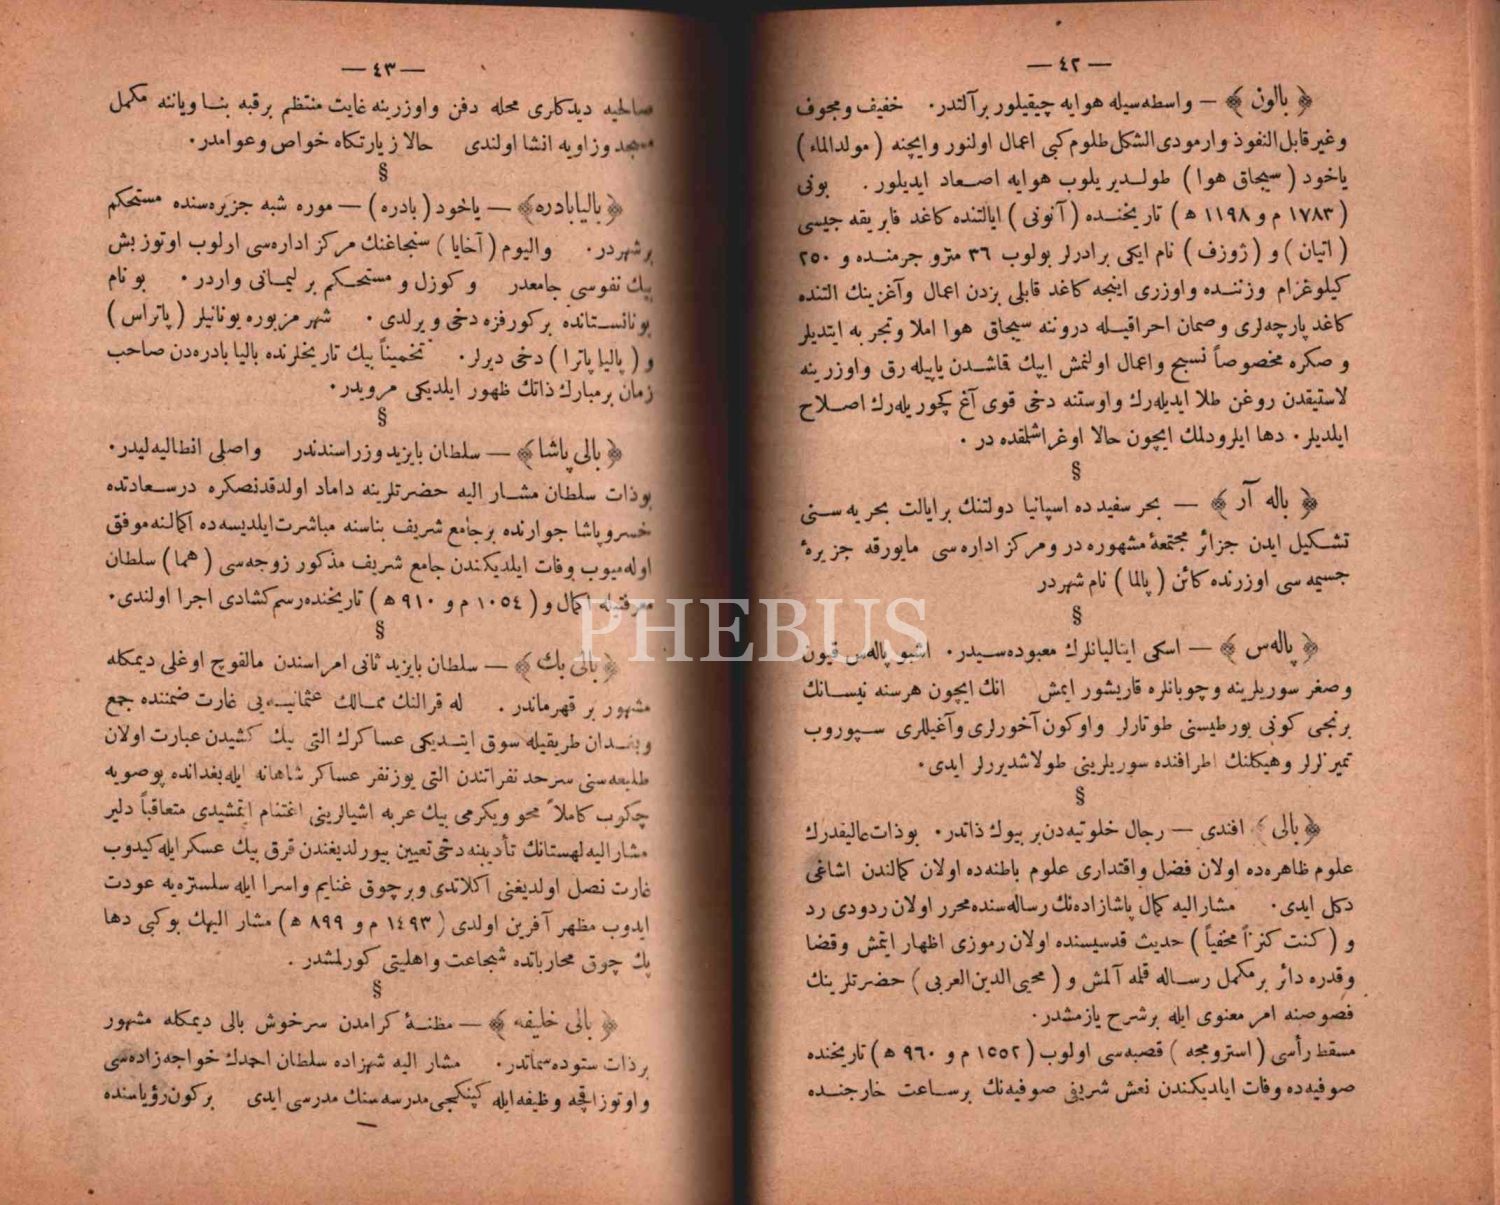 — ٤٢ —
﴿ بالون ﴾ — واسطه‌سيله هوايه چيقيلور بر آلتدر. خفيف و مجوف
و غير قابل النفوذ و ارمودی الشكل طلوم كبی اعمال اولنور و ايچنه ( مولد الماء )
ياخود ( سيجاق هوا ) طولديريلوب هوايه اصعاد ايديلور. بونی
( ١٧٨٣ م و ١١٩٨ ه ) تاريخنده ( آنونی ) ايالتنده كاغد فابريقه جيسی
( اتيان ) و ( ژوزف ) نام ايكی برادرلر بولوب ٣٦ مترو جرمنده و ٢٥٠
كيلوغرام وزننده و اوزری اينجه كاغد قابلی بزدن اعمال و آغزينك التنده
كاغد پارچه‌لری و صمان احراقيله دروننه سيجاق هوا املا و تجربه ايتديلر
و صكره مخصوصاً نسيج و اعمال اولنمش ايپك قاشدن ياپيله رق و اوزرينه
لاستيقدن روغن طلا ايديله‌رك و اوستنه دخی قوی آغ كچوريله‌رك اصلاح
ايلديلر. دها ايلرودلك ايچون حالا اوغراشلقده در.
§
﴿ باله آر ﴾ — بحر سفيد ده اسپانيا دولتنك بر ايالت بحريه سنی
تشكيل ايدن جزائر مجتمعهٔ مشهوره در و مركز اداره‌سی مايورقه جزيرهٔ
جسيمه سی اوزرنده كائن ( پالما ) نام شهردر
§
﴿ پاله‌س ﴾ — اسكی ايتاليانلرك معبوده‌سيدر. اشبو پاله‌س قيون
و صغر سوريلرينه و چوبانلره قاريشور ايمش انك ايچون هر سنه نيسانك
برنجی كونی يورطيسنی طوتارلر و اوكون آخورلری و آغيللری سپوروب
تميزلرلر و هيكلنك اطرافنده سوريلرينی طولاشديررلر ايدی.
§
﴿ بالی ﴾ افندی — رجال خلوتيه‌دن بر بيوك ذاتدر. بو ذات عاليقدرك
علوم ظاهره‌ده اولان فضل و اقتداری علوم باطنه‌ده اولان كمالندن اشاغی
دكل ايدی. مشاراليه كمال پاشازاده‌نك رساله‌سنده محرر اولان ردودی رد
و ( كنت كنزاً مخفياً ) حديث قدسيسنده اولان رموزی اظهار ايتمش و قضا
و قدره دائر بر مكمل رساله قلمه آلمش و ( محيی الدين العربی ) حضرتلرينك
فصوصنه امر معنوی ايله بر شرح يازمشدر.
مسقط رأسی ( استرومجه ) قصبه‌سی اولوب ( ١٥٥٢ م و ٩٦٠ ه ) تاريخنده
صوفيه‌ده وفات ايلديكندن نعش شريفی صوفيه‌نك بر ساعت خارجنده
— ٤٣ —
صالحيه ديدكلری محله دفن و اوزرينه غايت منتظم بر قبه بنا و ياننه مكمل
مسجد و زاويه انشا اولندی حالا زيارتكاه خواص و عوامدر.
§
﴿ باليابادره ﴾ — ياخود ( بادره ) — موره شبه جزيره‌سنده مستحكم
بر شهردر. و اليوم ( آخايا ) سنجاغنك مركز اداره‌سی اولوب اوتوز بش
بيك نفوسی جامعدر و كوزل و مستحكم بر ليمانی واردر. بو نام
يونانستانده بر كورفزه دخی ويرلدی. شهر مزبوره يونانيلر ( پاتراس )
و ( پاليا پاترا ) دخی ديرلر. تخميناً بيك تاريخلرنده باليا بادره‌دن صاحب
زمان بر مبارك ذاتك ظهور ايلديكی مرويدر.
§
﴿ بالی پاشا ﴾ — سلطان بايزيد وزراسندندر و اصلی انطاليه ليدر.
بو ذات سلطان مشار اليه حضرتلرينه داماد اولدقدنصكره درسعادتده
خسرو پاشا جوارنده بر جامع شريف بناسنه مباشرت ايلديسه‌ده اكمالنه موفق
اوله‌ميوب وفات ايلديكندن جامع شريف مذكور زوجه‌سی ( هما ) سلطان
معرفتيله اكمال و ( ١٠٥٤ م و ٩١٠ ه ) تاريخنده رسم كشادی اجرا اولندی.
§
﴿ بالی بك ﴾ — سلطان بايزيد ثانی امراسندن مالقوچ اوغلی ديمكله
مشهور بر قهرماندر. له قرالنك ممالك عثمانيه‌يی غارت ضمننده جمع
و بغدان طريقيله سوق ايتديكی عساكرك التی بيك كشيدن عبارت اولان
طليعه‌سنی سرحد نفراتندن التی يوز نفر عساكر شاهانه ايله بغدانده پوصويه
چكوب كاملاً محو و يكرمی بيك عربه اشيالرينی اغتنام ايتمشيدی متعاقباً دلير
مشاراليه لهستانك تأديبنه دخی تعيين بيورلديغندن قرق بيك عسكر ايله كيدوب
غارت نصل اولديغنی آكلاتدی و بر چوق غنايم و اسرا ايله سلستره‌يه عودت
ايدوب مظهر آفرين اولدی ( ١٤٩٣ م و ٨٩٩ ه ) مشار اليهك بو كبی دها
پك چوق محارباتده شجاعت و اهليتی كورلمشدر.
§
﴿ بالی خليفه ﴾ — مظنهٔ كرامدن سرخوش بالی ديمكله مشهور
بر ذات ستوده سماتدر. مشار اليه شهزاده سلطان احمدك خواجه زاده‌سی
و اوتوز اقچه وظيفه ايله كپنكجی مدرسه‌سنك مدرسی ايدی بركون رؤياسنده
PHEBUS